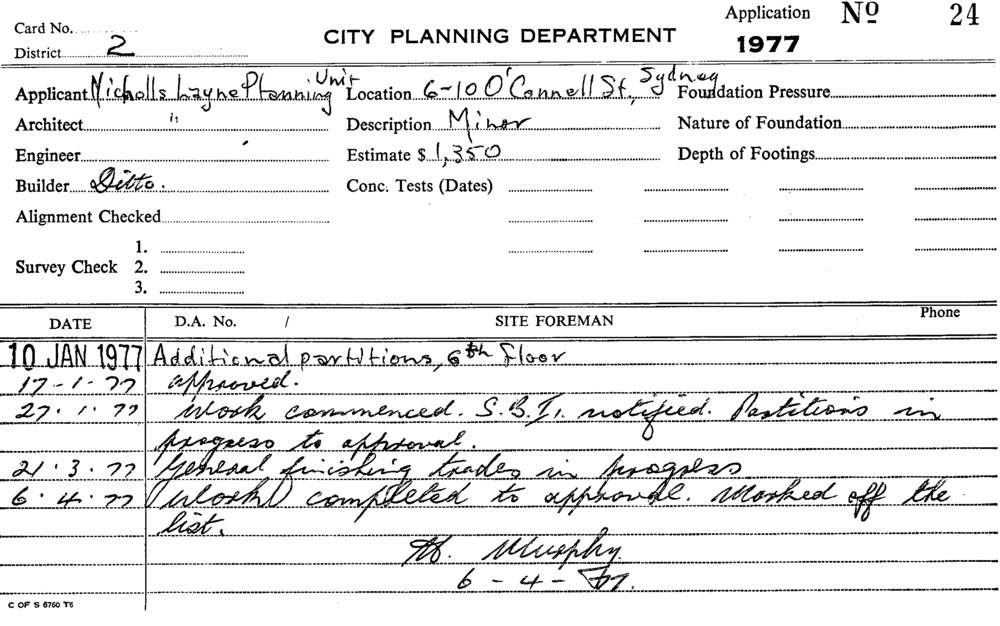 Card No.
Application No 24
District 2
CITY PLANNING DEPARTMENT
1977
Applicant Nicholls Layne Planning Unit
Location 6-10 O'Connell St, Sydney
Foundation Pressure
Architect "
Description Minor
Nature of Foundation
Engineer
Estimate $ 1,350
Depth of Footings
Builder Ditto.
Conc. Tests (Dates)
Alignment Checked
1.
Survey Check 2.
3.
DATE D.A. No. / SITE FOREMAN Phone
10 JAN 1977 Additional partitions, 6th floor
17-1-77 approved.
27.1.77 Work commenced. S.B.I. notified. Partitions in
progress to approval.
21.3.77 General finishing trades in progress
6.4.77 Work completed to approval. Marked off the
list.
Murphy.
6-4-77.
C OF S 6760 T6